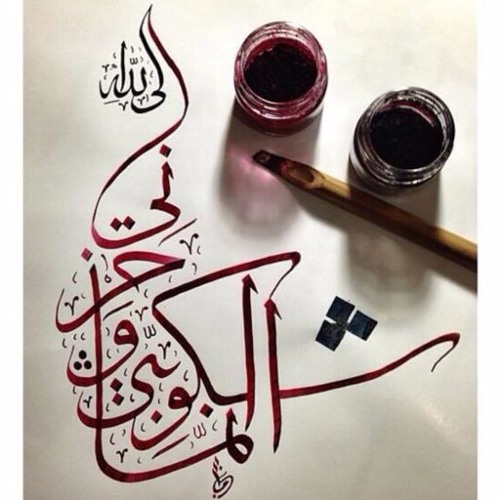 إنّما أشكو بثّي وحزني إلى اللّٰه